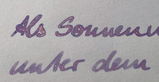 Als Sonnenu
unter dem